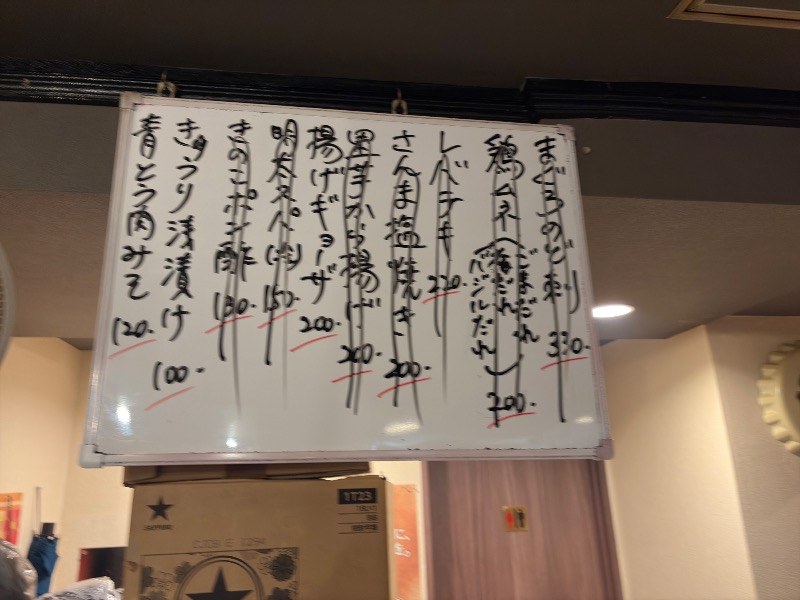 まぐろのど刺 330-
鶏ムネ(ごまだれ
梅だれ
バジルだれ) 200-
レバテキ 220-
さんま塩焼き 200-
里芋から揚げ 200-
揚げギョーザ 200-
明太スパ(冷) 150-
きのこポン酢 130-
きゅうり浅漬け 100-
青とう肉みそ 120-
1T23